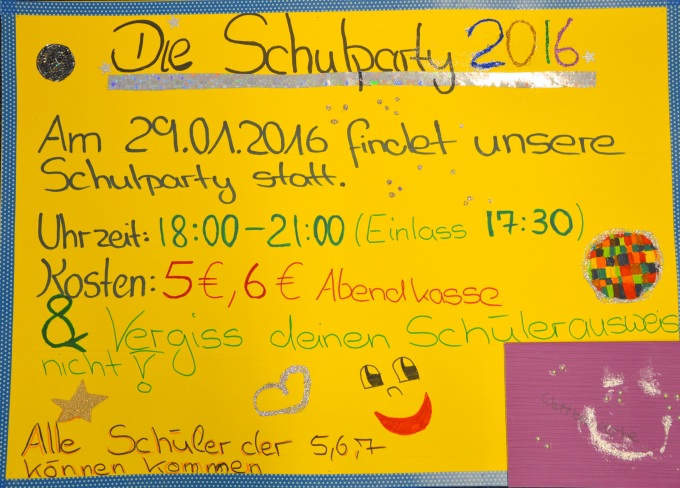 Die Schulparty 2016
Am 29.01.2016 findet unsere
Schulparty statt.
Uhrzeit: 18:00-21:00 (Einlass 17:30)
Kosten: 5€, 6€ Abendkasse
& Vergiss deinen Schülerausweis
nicht!
Alle Schüler der 5,6,7
können kommen